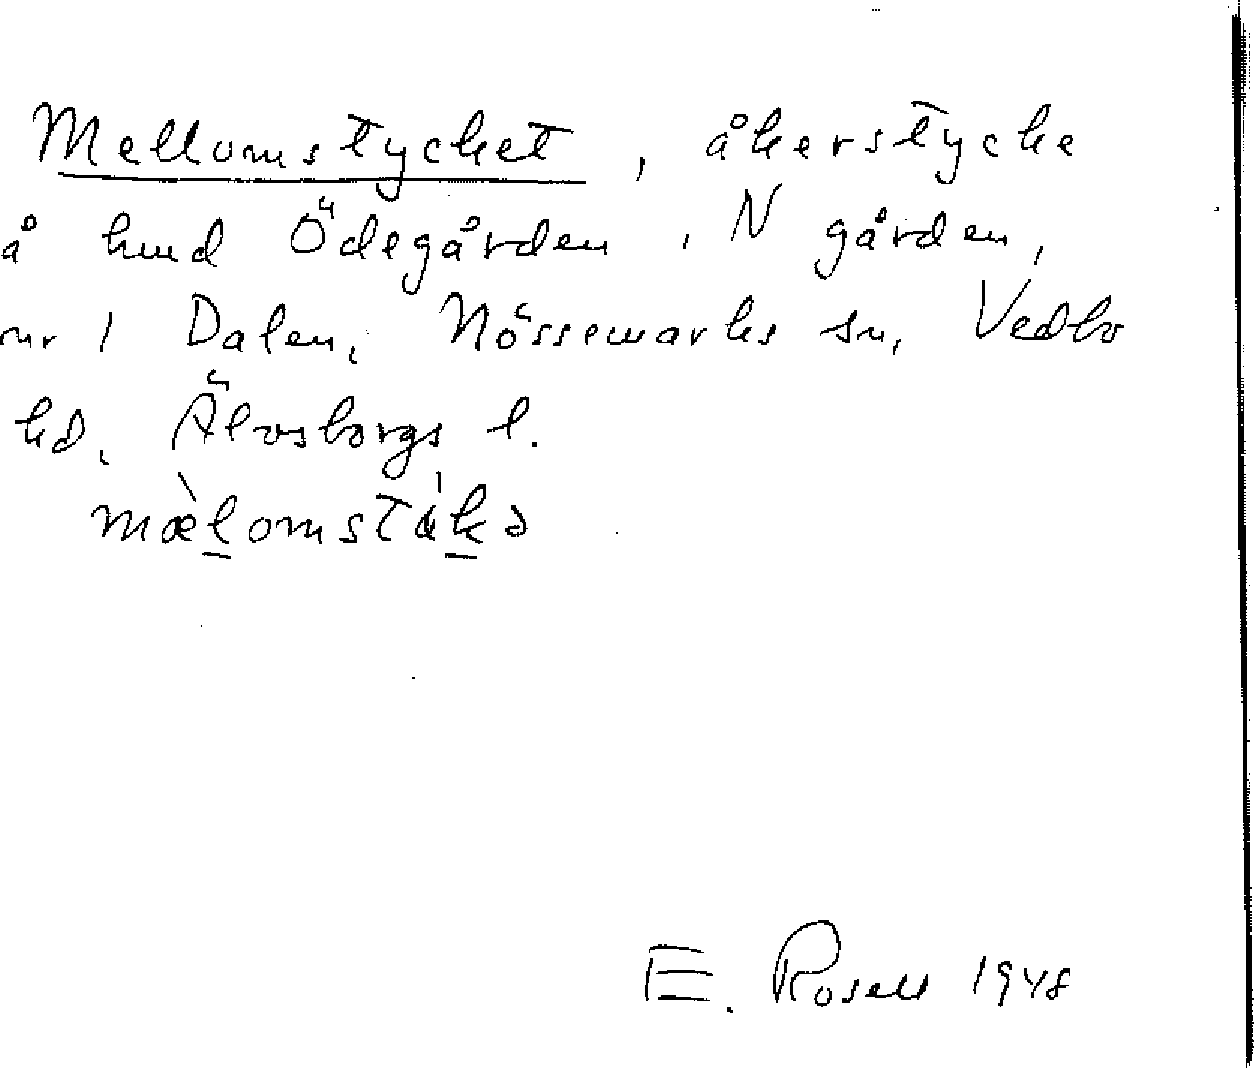 Mellomstycket, åkerstycke
å hmd Ödegården, N gården,
nr 1 Dalen, Nössemarks sn, Vedbo
hd, Älvsborgs l.
mæ̀lomstákə
E. Rosell 1948